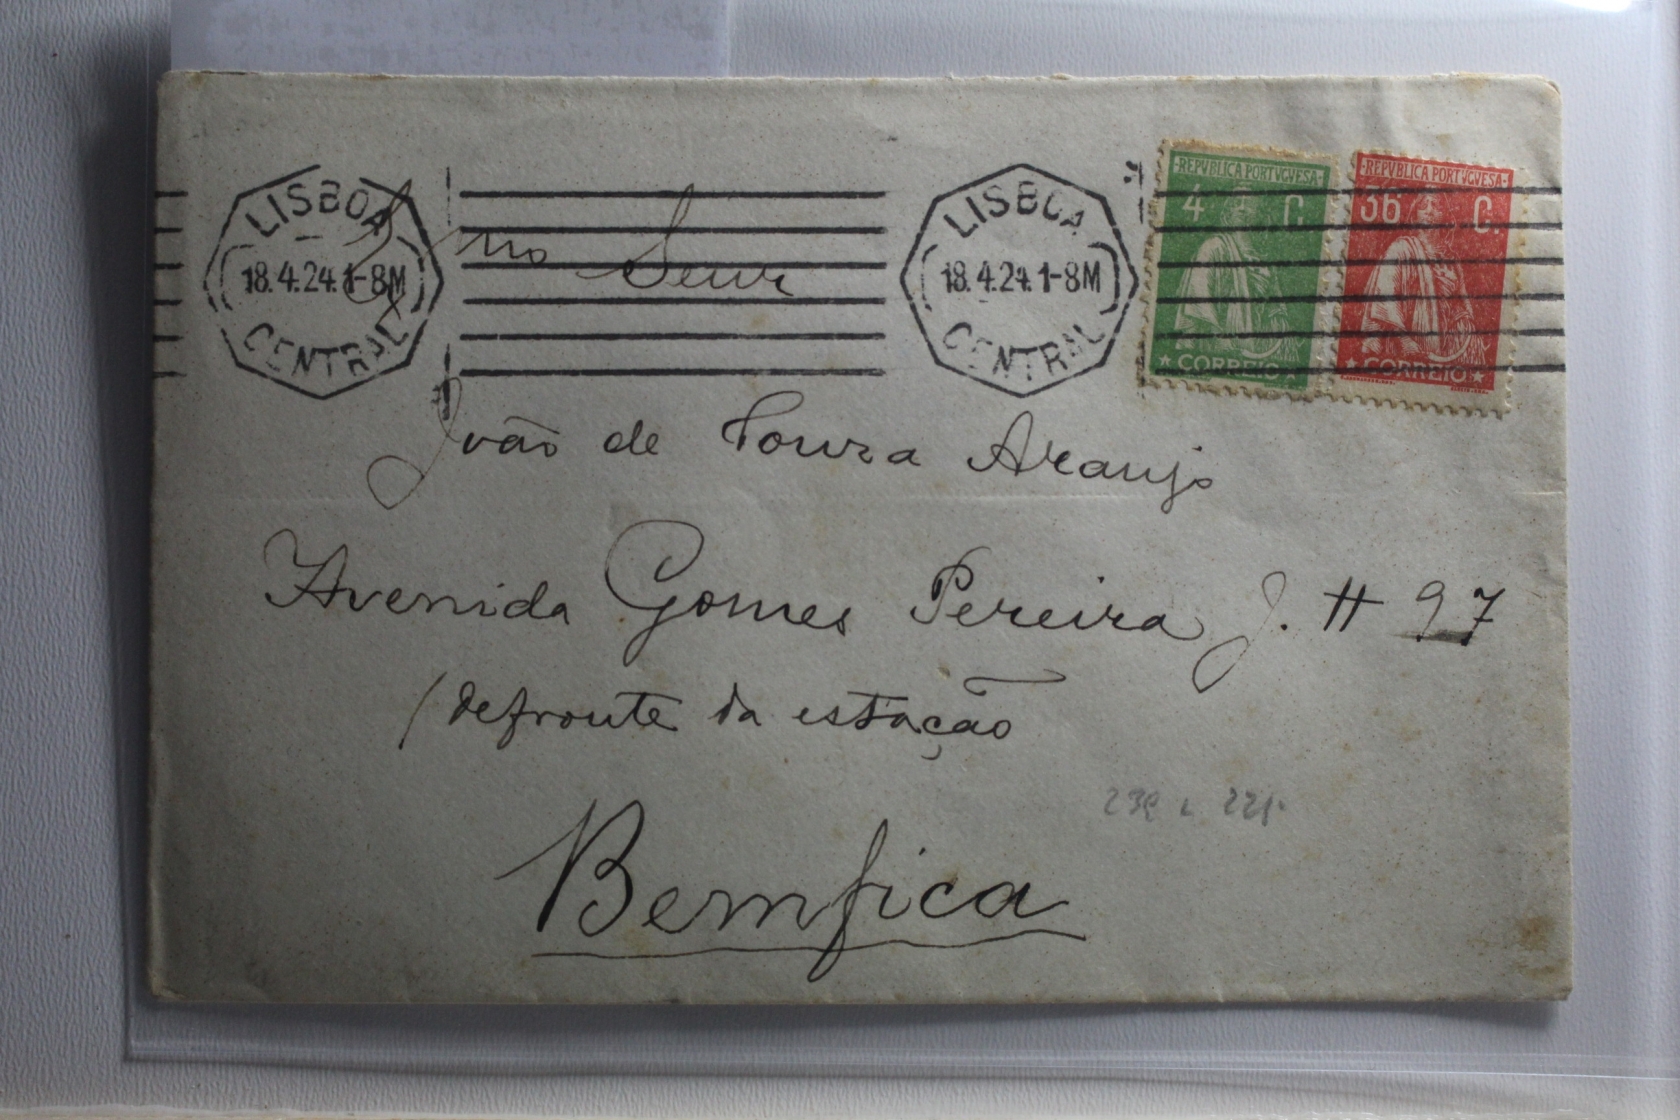 REPVBLICA PORTVGVESA
4 C.
CORREIO
REPVBLICA PORTVGVESA
36 C.
CORREIO
LISBOA
18.4.24.1-8M
CENTRAL
LISBOA
18.4.24.1-8M
CENTRAL
Exmo Senr
João de Souza Araujo
Avenida Gomes Pereira J. H 97
(defronte da estação
Bemfica